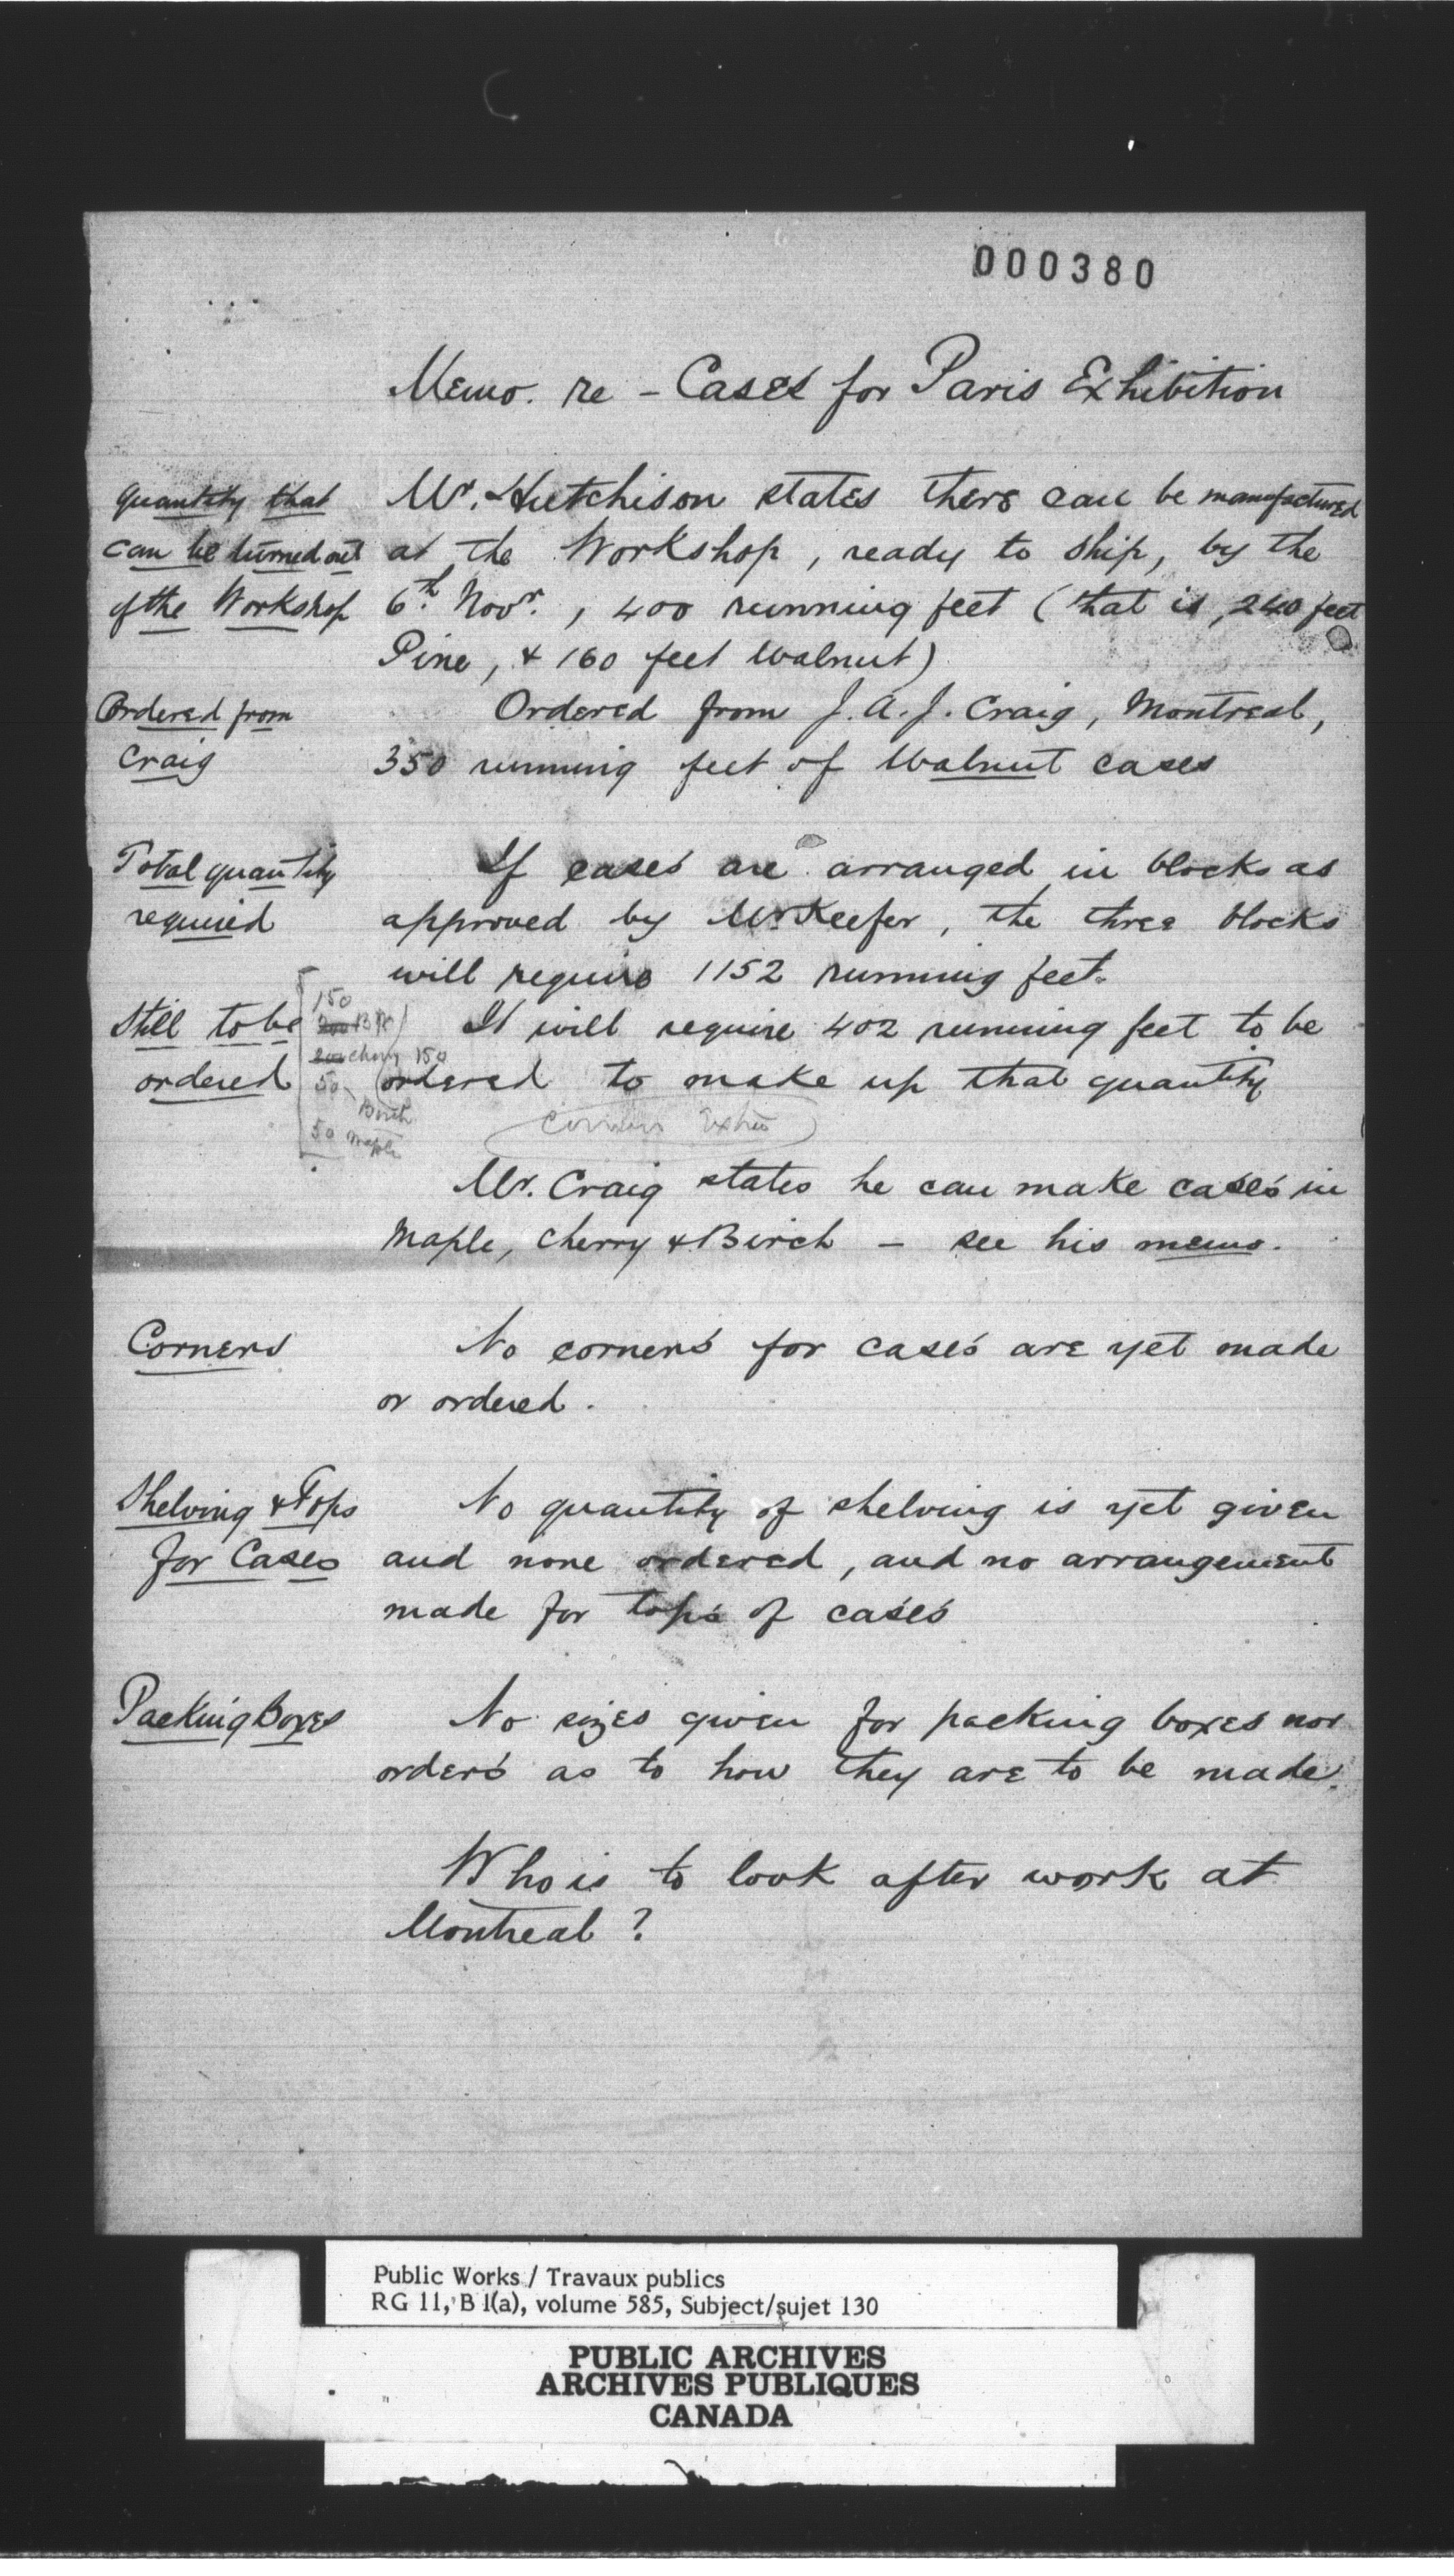 000380
Memo. re - Cases for Paris Exhibition
Quantity that
can be turned out
of the Workshop
Mr. Hutchison states there can be manufactured
at the Workshop, ready to ship, by the
6th. Novr., 400 running feet (that is, 240 feet
Pine, & 160 feet Walnut)
Ordered from
Craig
Ordered from J. A. J. Craig, Montreal,
350 running feet of Walnut cases
Total quantity
required
If cases are arranged in blocks as
approved by Mr Keefer, the three blocks
will require 1152 running feet.
Still to be
ordered
150
200
200 cherry 150
50 Birch
50 Maple
It will require 402 running feet to be
ordered to make up that quantity
Corners Extra
Mr. Craig states he can make cases in
Maple, Cherry & Birch - see his memo.
Corners
No corners for cases are yet made
or ordered.
Shelving & Tops
for Cases
No quantity of shelving is yet given
and none ordered, and no arrangement
made for tops of cases
Packing Boxes
No sizes given for packing boxes nor
orders as to how they are to be made.
Who is to look after work at
Montreal?
Public Works / Travaux publics
RG 11, B 1(a), volume 585, Subject/sujet 130
PUBLIC ARCHIVES
ARCHIVES PUBLIQUES
CANADA